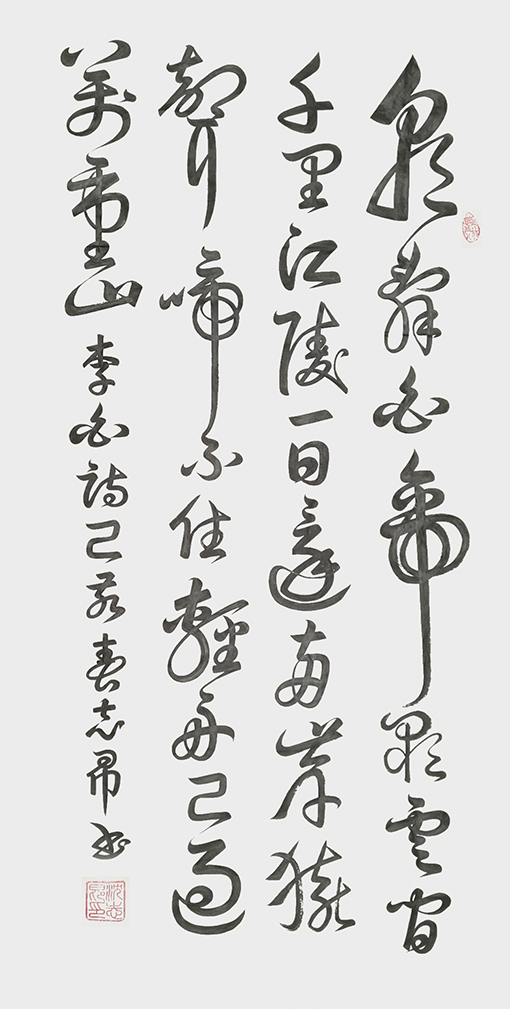 朝辭白帝彩雲間
千里江陵一日還兩岸猿
聲啼不住輕舟已過
萬重山 李白詩己亥春志書